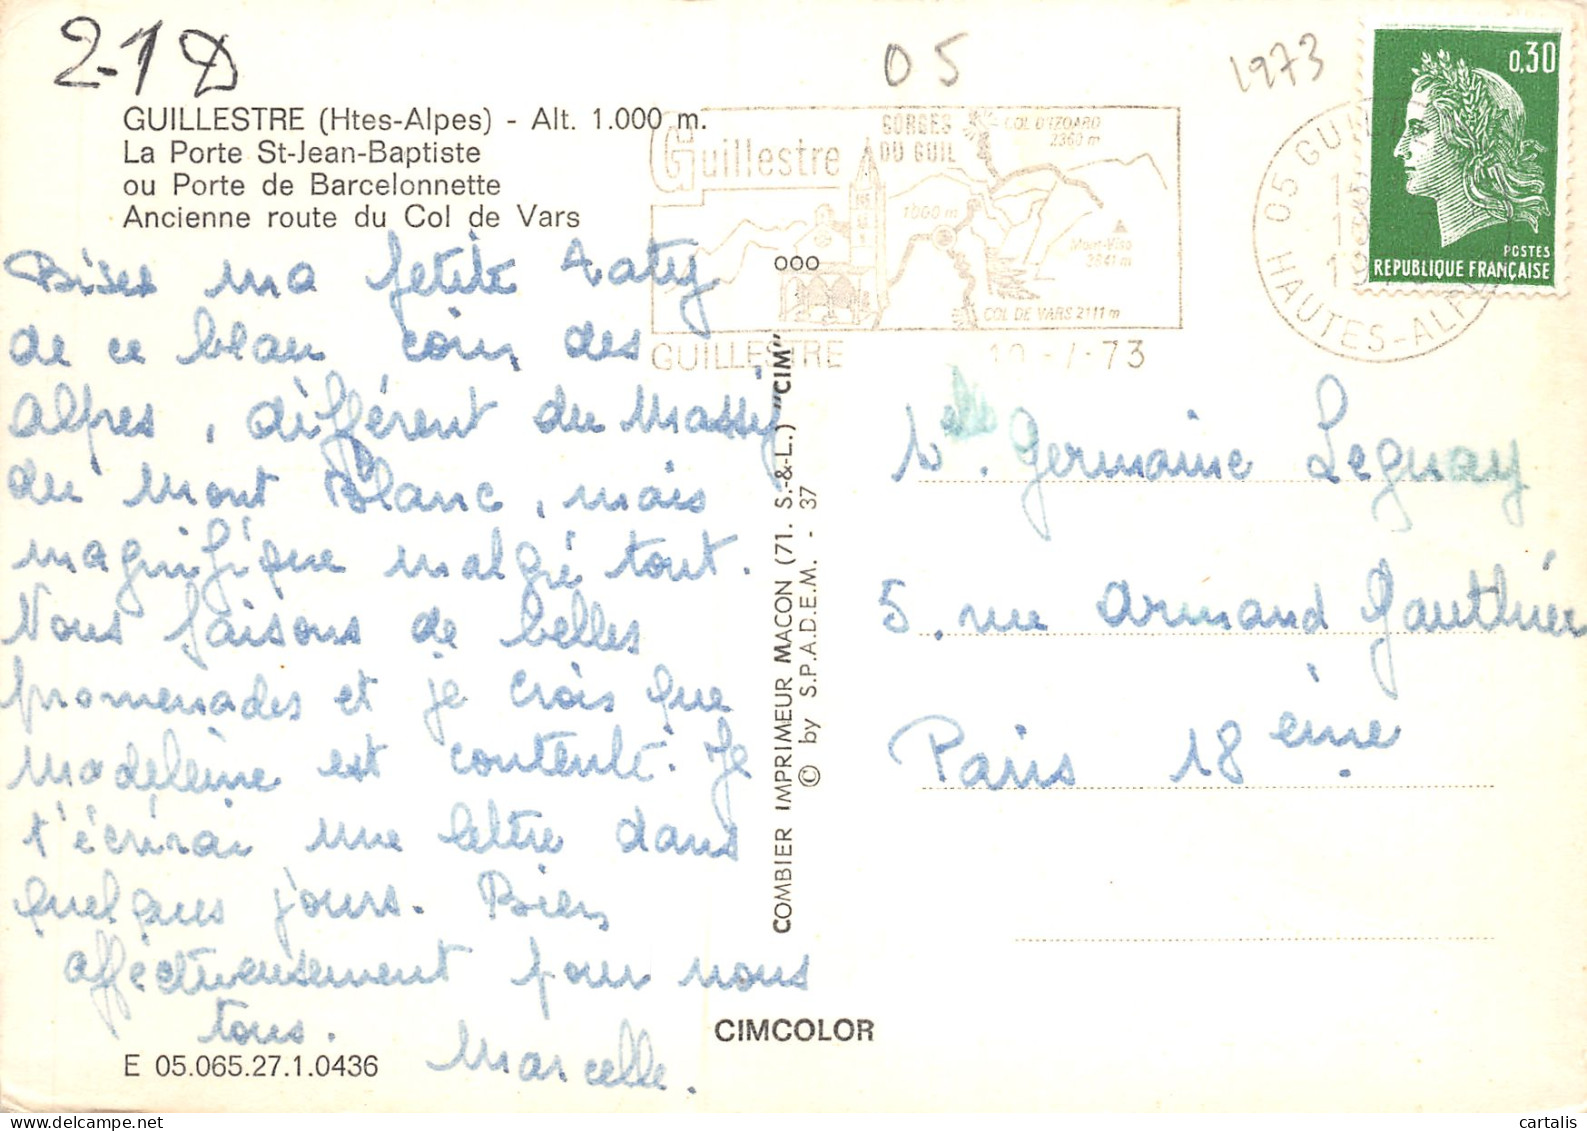 2-1 D
05
1973
0,30
POSTES
REPUBLIQUE FRANÇAISE
GUILLESTRE (Htes-Alpes) - Alt. 1.000 m.
La Porte St-Jean-Baptiste
ou Porte de Barcelonnette
Ancienne route du Col de Vars
Guillestre
GORGES
DU GUIL
COL D'IZOARD
2360 m
1000 m
Mont-Viso
3841 m
COL DE VARS 2111 m
GUILLESTRE
10 -7-73
05 GUIL
HAUTES-ALP
Bises ma petite Taty
de ce beau coin des
Alpes, différent du Massif
du Mont Blanc, mais
magnifique malgré tout.
Nous faisons de belles
promenades et je crois que
Madeleine est contente. Je
t'écrirai une lettre dans
quelques jours. Bien
affectueusement pour nous
tous.
Marcelle.
Melle. Germaine Leguay
5, rue Armand Gauthier
Paris 18 ème
ooo
COMBIER IMPRIMEUR MACON (71. S.-&-L.) "CIM"
© by S.P.A.D.E.M. - 37
CIMCOLOR
E 05.065.27.1.0436
cartalis